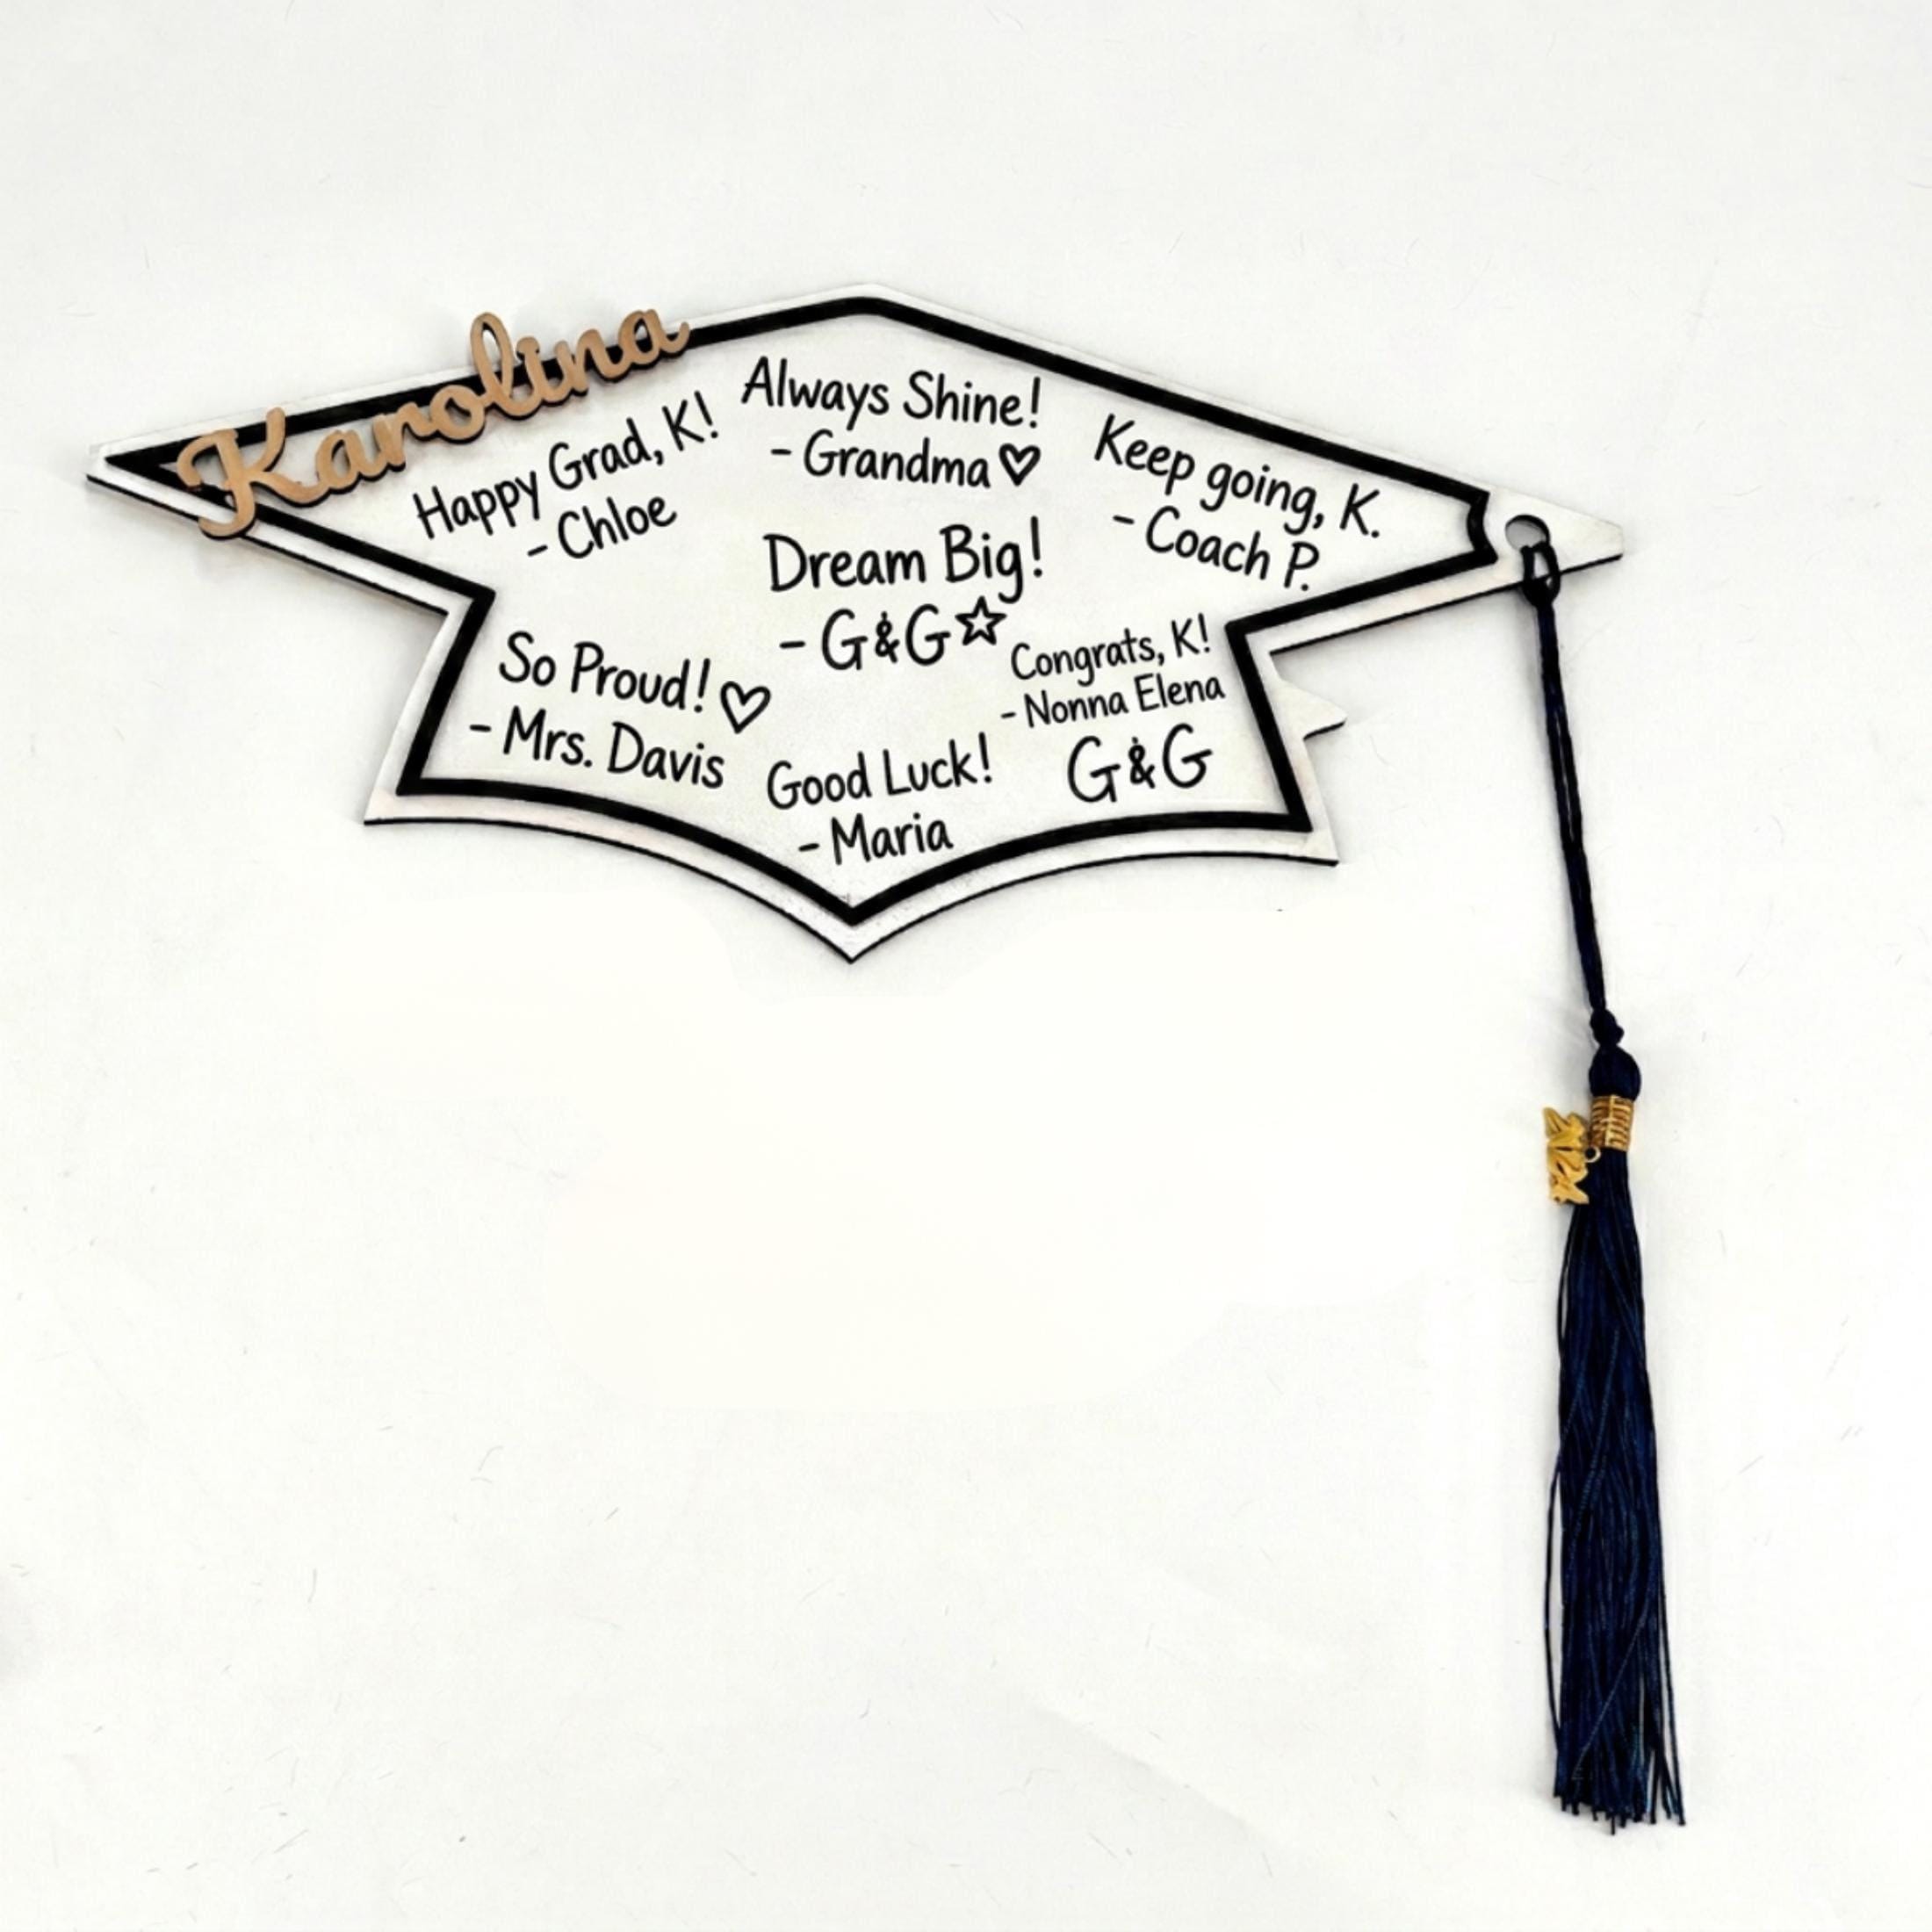 Karolina
Happy Grad, K!
- Chloe
Always Shine!
- Grandma ♡
Keep going, K.
- Coach P.
Dream Big!
- G&G ☆
So Proud! ♡
- Mrs. Davis
Good Luck!
- Maria
Congrats, K!
- Nonna Elena
G&G